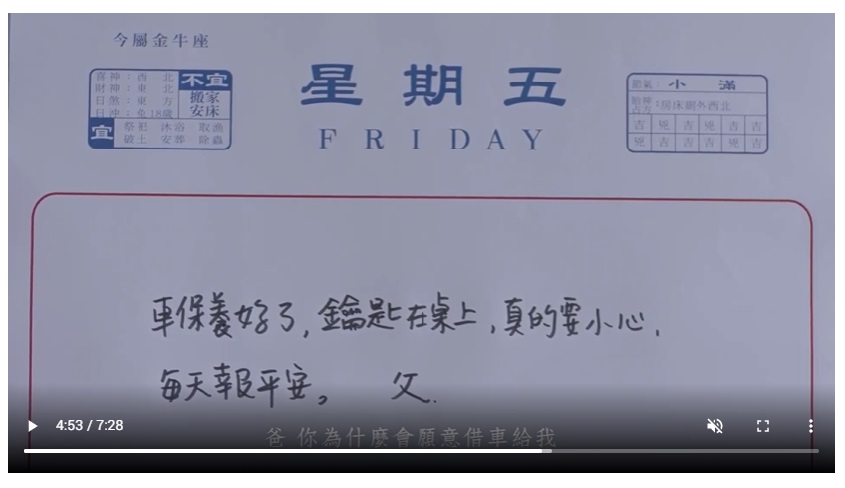 今屬金牛座
喜神：西北
財神：東北
日煞：東方
日沖：兔18歲
不宜
搬家
安床
宜
祭祀 沐浴 取漁
破土 安葬 除蟲
星期五
FRIDAY
節氣：小滿
胎神占方：房床廁外西北
吉 兇 吉 兇 吉 吉
兇 吉 吉 吉 兇 吉
車保養好了,鑰匙在桌上,真的要小心,
每天報平安。 父.
爸 你為什麼會願意借車給我
4:53 / 7:28